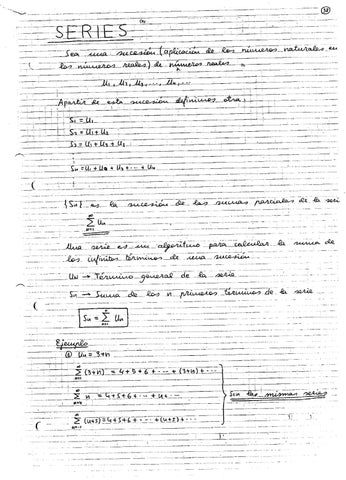 SERIES
Sea una sucesión (aplicación de los números naturales en
los números reales) de números reales
U₁, U₂, U₃, ..., Uₙ, ...
Apartir de esta sucesión definimos otra:
S₁ = U₁
S₂ = U₁ + U₂
S₃ = U₁ + U₂ + U₃
Sₙ = U₁ + U₂ + U₃ + ... + Uₙ
{Sₙ} es la sucesión de las sumas parciales de la seri
∞ Σ n=1 Uₙ
Una serie es un algoritmo para calcular la suma de
los infinitos términos de una sucesión
Uₙ → Término general de la serie
Sₙ → Suma de los n primeros términos de la serie
Sₙ = Σ n=1 Uₙ
Ejemplo
Uₙ = 3+n
Σ n=1 (3+n) = 4+5+6+ ... + (3+n) + ...
Σ n = 4+5+6+ ... +
Son las mismas series
Σ (n+3) = 4+5+6+ ... +